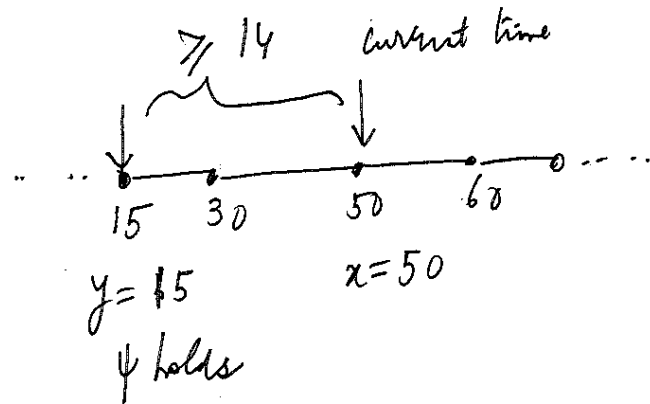 ≥ 14 current time
.. .. .. ..
15 30 50 60
y = 15 x = 50
ψ holds